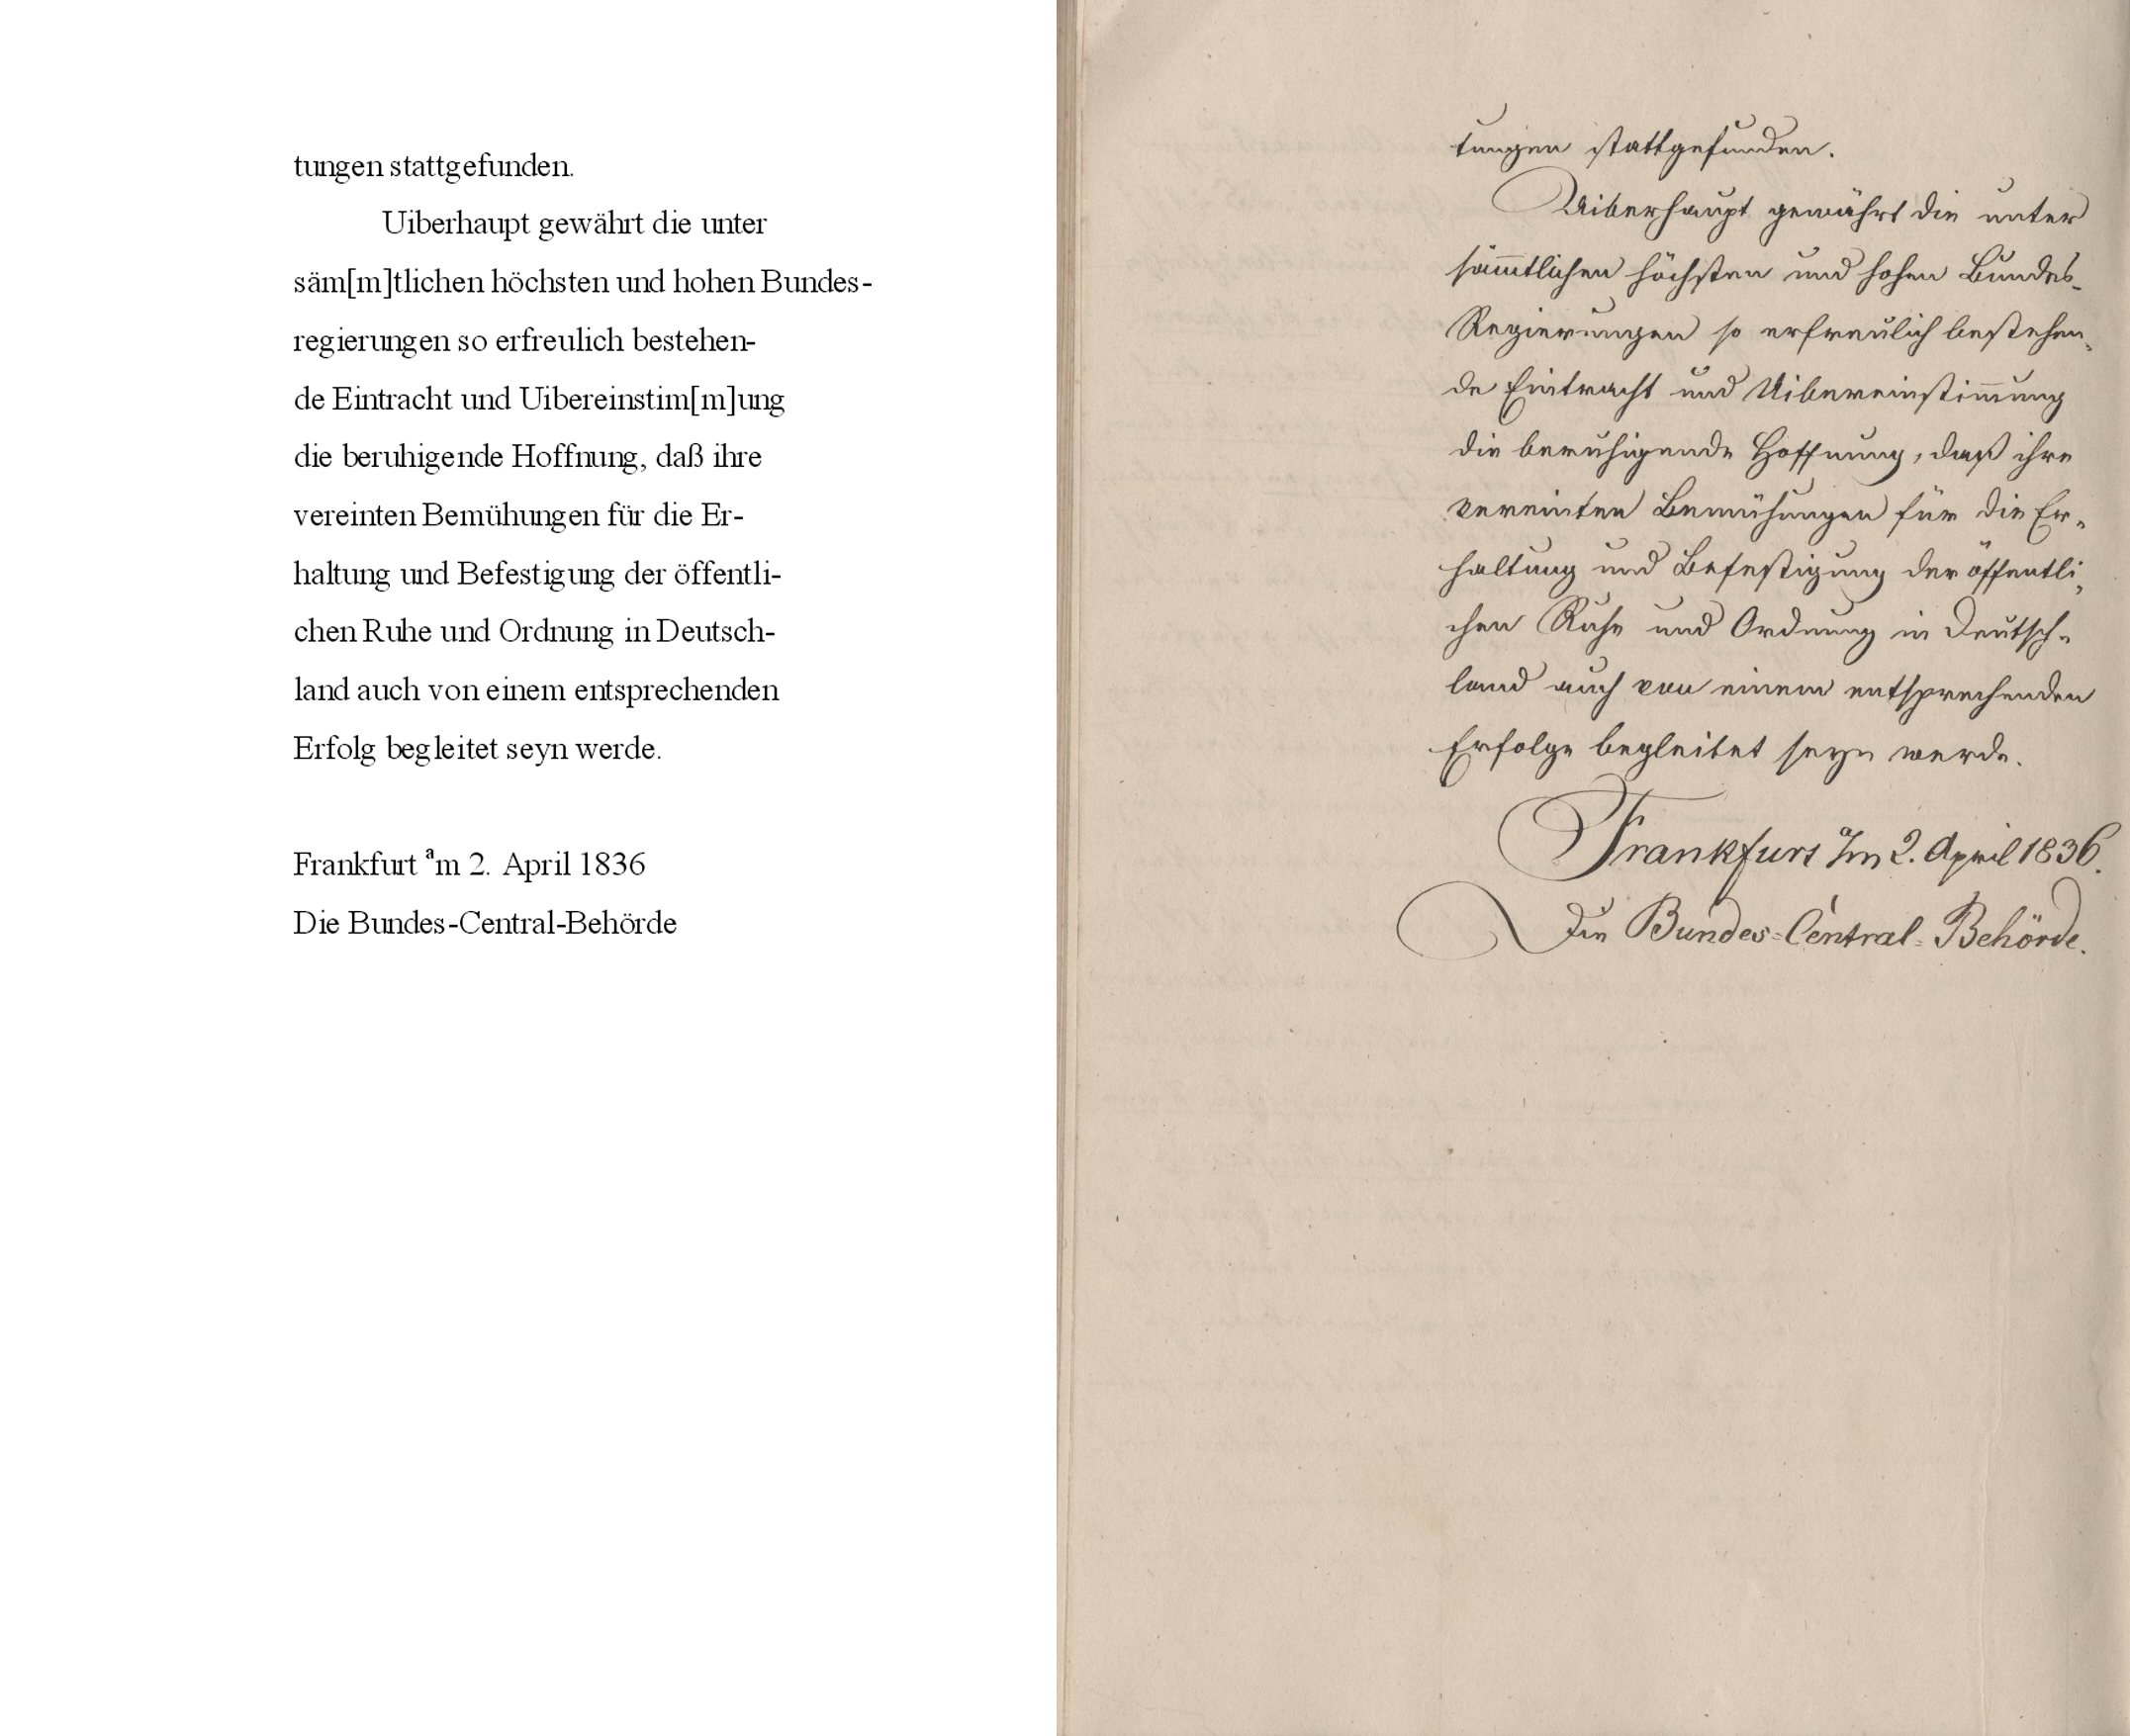 tungen stattgefunden.
Uiberhaupt gewährt die unter
säm[m]tlichen höchsten und hohen Bundes-
regierungen so erfreulich bestehen-
de Eintracht und Uibereinstim[m]ung
die beruhigende Hoffnung, daß ihre
vereinten Bemühungen für die Er-
haltung und Befestigung der öffentli-
chen Ruhe und Ordnung in Deutsch-
land auch von einem entsprechenden
Erfolg begleitet seyn werde.
Frankfurt ᵃm 2. April 1836
Die Bundes-Central-Behörde
tungen stattgefunden.
Uiberhaupt gewährt die unter
säm̅tlichen höchsten und hohen Bundes-
Regierungen so erfreulich bestehen-
de Eintracht und Uibereinstim̅ung
die beruhigende Hoffnung, daß ihre
vereinten Bemühungen für die Er-
haltung und Befestigung der öffentli-
chen Ruhe und Ordnung in Deutsch-
land auch von einem entsprechenden
Erfolge begleitet seyn werde.
Frankfurt ᵃ/m 2. April 1836.
Die Bundes-Central-Behörde.